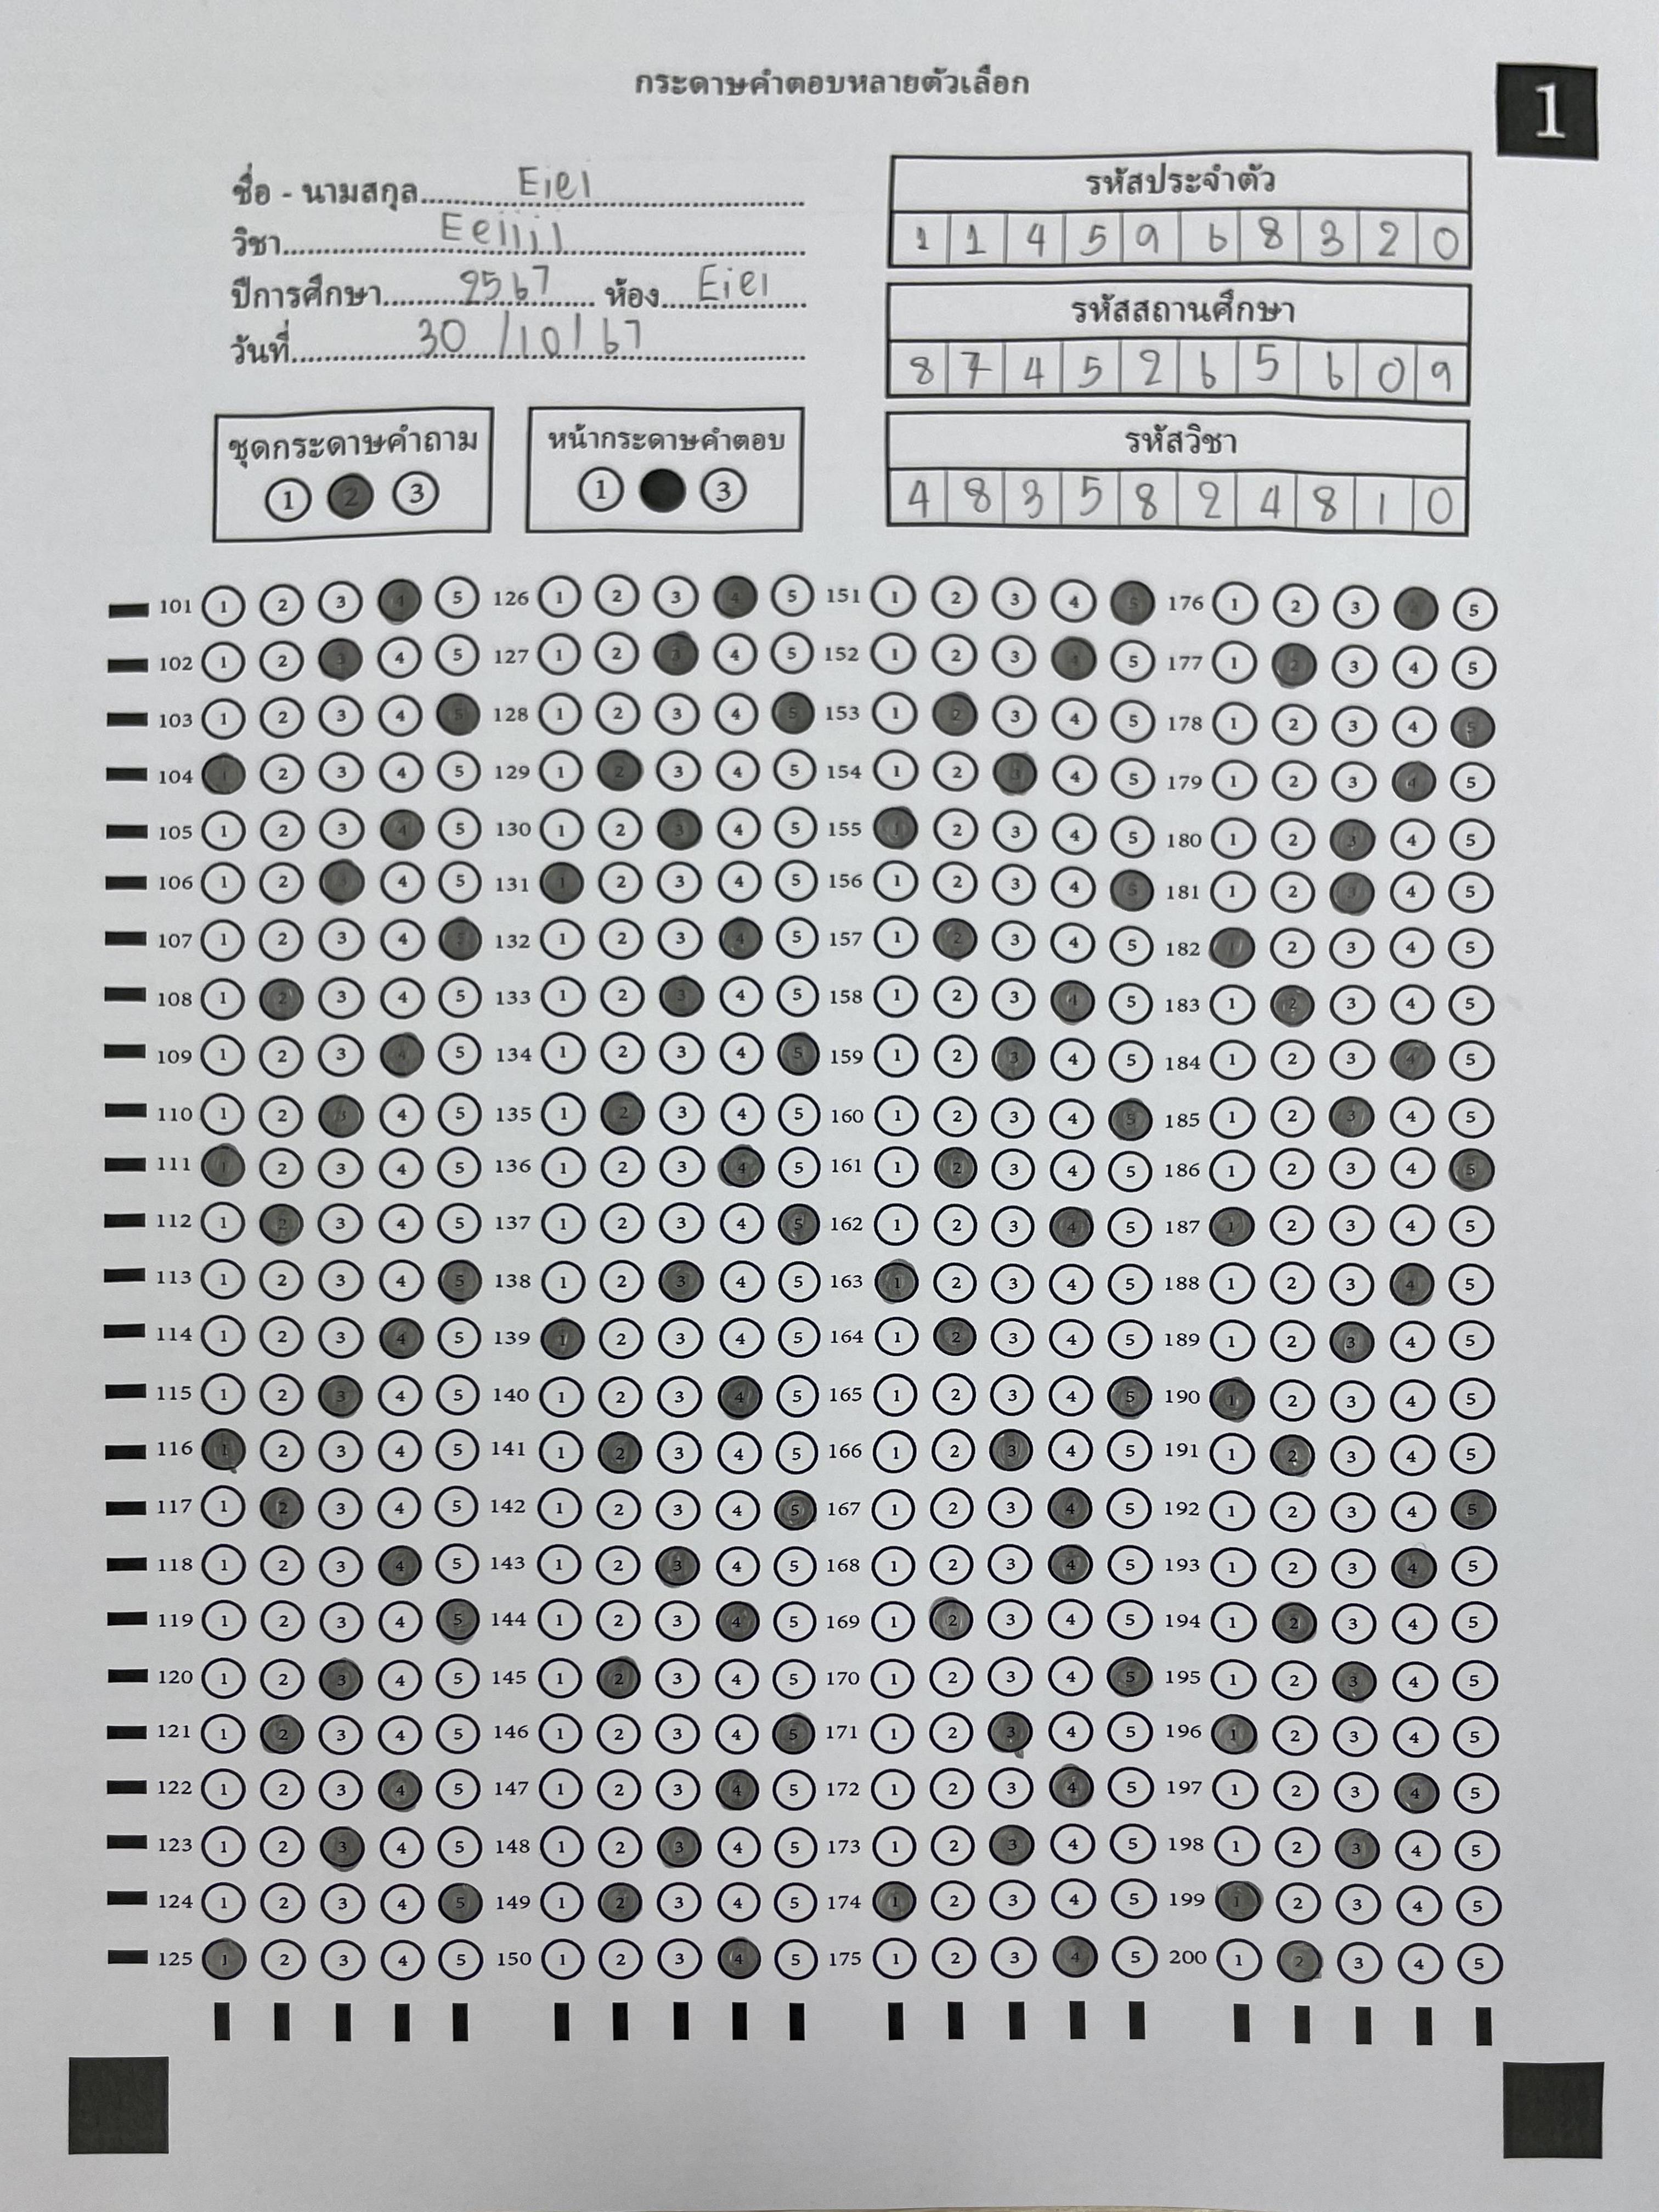 กระดาษคำตอบหลายตัวเลือก
1
ชื่อ - นามสกุล Eiei
วิชา Eeiiii
ปีการศึกษา 2567 ห้อง Eiei
วันที่ 30/10/67
รหัสประจำตัว
1 1 4 5 9 6 8 3 2 0
รหัสสถานศึกษา
8 7 4 5 2 6 5 6 0 9
รหัสวิชา
4 8 3 5 8 2 4 8 1 0
ชุดกระดาษคำถาม
1 2 3
หน้ากระดาษคำตอบ
1 3
101 1 2 3 4 5 126 1 2 3 4 5 151 1 2 3 4 5 176 1 2 3 4 5
102 1 2 3 4 5 127 1 2 3 4 5 152 1 2 3 4 5 177 1 2 3 4 5
103 1 2 3 4 5 128 1 2 3 4 5 153 1 2 3 4 5 178 1 2 3 4 5
104 1 2 3 4 5 129 1 2 3 4 5 154 1 2 3 4 5 179 1 2 3 4 5
105 1 2 3 4 5 130 1 2 3 4 5 155 1 2 3 4 5 180 1 2 3 4 5
106 1 2 3 4 5 131 1 2 3 4 5 156 1 2 3 4 5 181 1 2 3 4 5
107 1 2 3 4 5 132 1 2 3 4 5 157 1 2 3 4 5 182 1 2 3 4 5
108 1 2 3 4 5 133 1 2 3 4 5 158 1 2 3 4 5 183 1 2 3 4 5
109 1 2 3 4 5 134 1 2 3 4 5 159 1 2 3 4 5 184 1 2 3 4 5
110 1 2 3 4 5 135 1 2 3 4 5 160 1 2 3 4 5 185 1 2 3 4 5
111 1 2 3 4 5 136 1 2 3 4 5 161 1 2 3 4 5 186 1 2 3 4 5
112 1 2 3 4 5 137 1 2 3 4 5 162 1 2 3 4 5 187 1 2 3 4 5
113 1 2 3 4 5 138 1 2 3 4 5 163 1 2 3 4 5 188 1 2 3 4 5
114 1 2 3 4 5 139 1 2 3 4 5 164 1 2 3 4 5 189 1 2 3 4 5
115 1 2 3 4 5 140 1 2 3 4 5 165 1 2 3 4 5 190 1 2 3 4 5
116 1 2 3 4 5 141 1 2 3 4 5 166 1 2 3 4 5 191 1 2 3 4 5
117 1 2 3 4 5 142 1 2 3 4 5 167 1 2 3 4 5 192 1 2 3 4 5
118 1 2 3 4 5 143 1 2 3 4 5 168 1 2 3 4 5 193 1 2 3 4 5
119 1 2 3 4 5 144 1 2 3 4 5 169 1 2 3 4 5 194 1 2 3 4 5
120 1 2 3 4 5 145 1 2 3 4 5 170 1 2 3 4 5 195 1 2 3 4 5
121 1 2 3 4 5 146 1 2 3 4 5 171 1 2 3 4 5 196 1 2 3 4 5
122 1 2 3 4 5 147 1 2 3 4 5 172 1 2 3 4 5 197 1 2 3 4 5
123 1 2 3 4 5 148 1 2 3 4 5 173 1 2 3 4 5 198 1 2 3 4 5
124 1 2 3 4 5 149 1 2 3 4 5 174 1 2 3 4 5 199 1 2 3 4 5
125 1 2 3 4 5 150 1 2 3 4 5 175 1 2 3 4 5 200 1 2 3 4 5